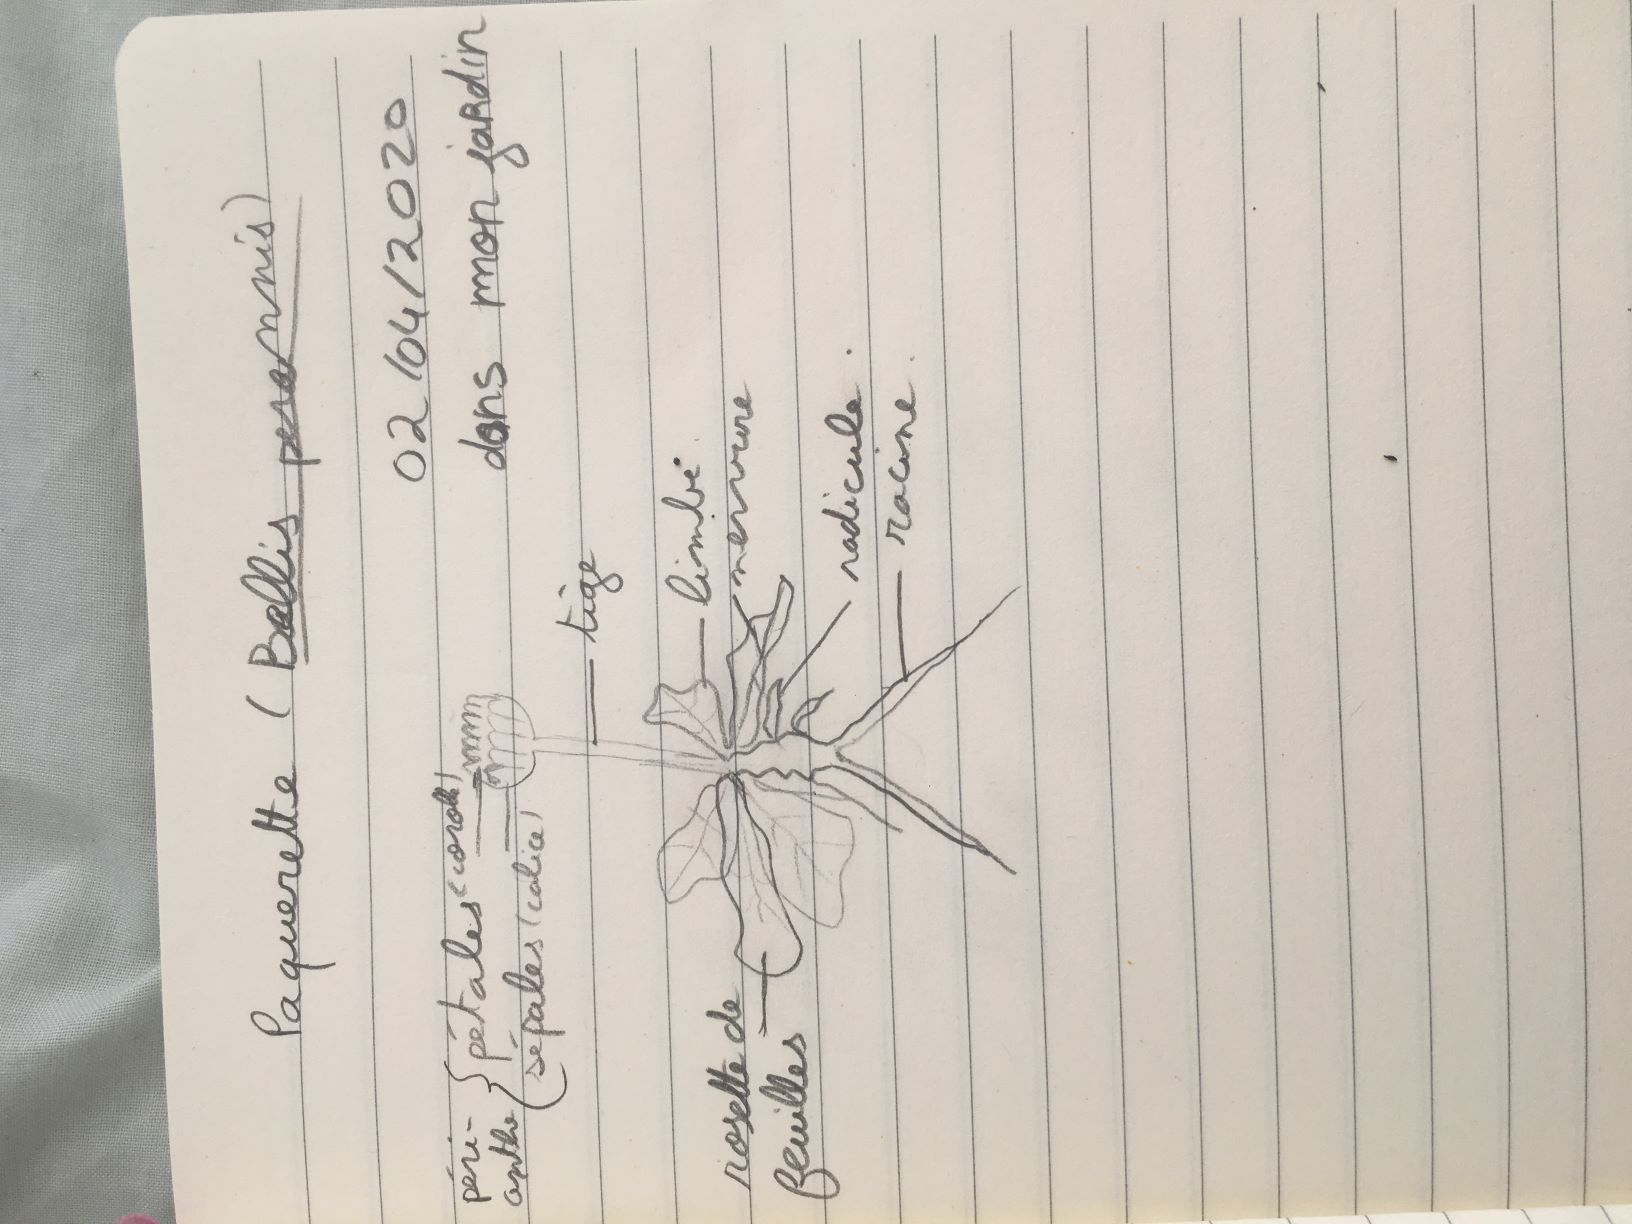 Paquerette (Bellis perennis)
02/04/2020
dans mon jardin
péri-
anthe
pétales (corolle)
sépales (calice)
tige
limbe
nervure
rosette de
feuilles
radicule
racine